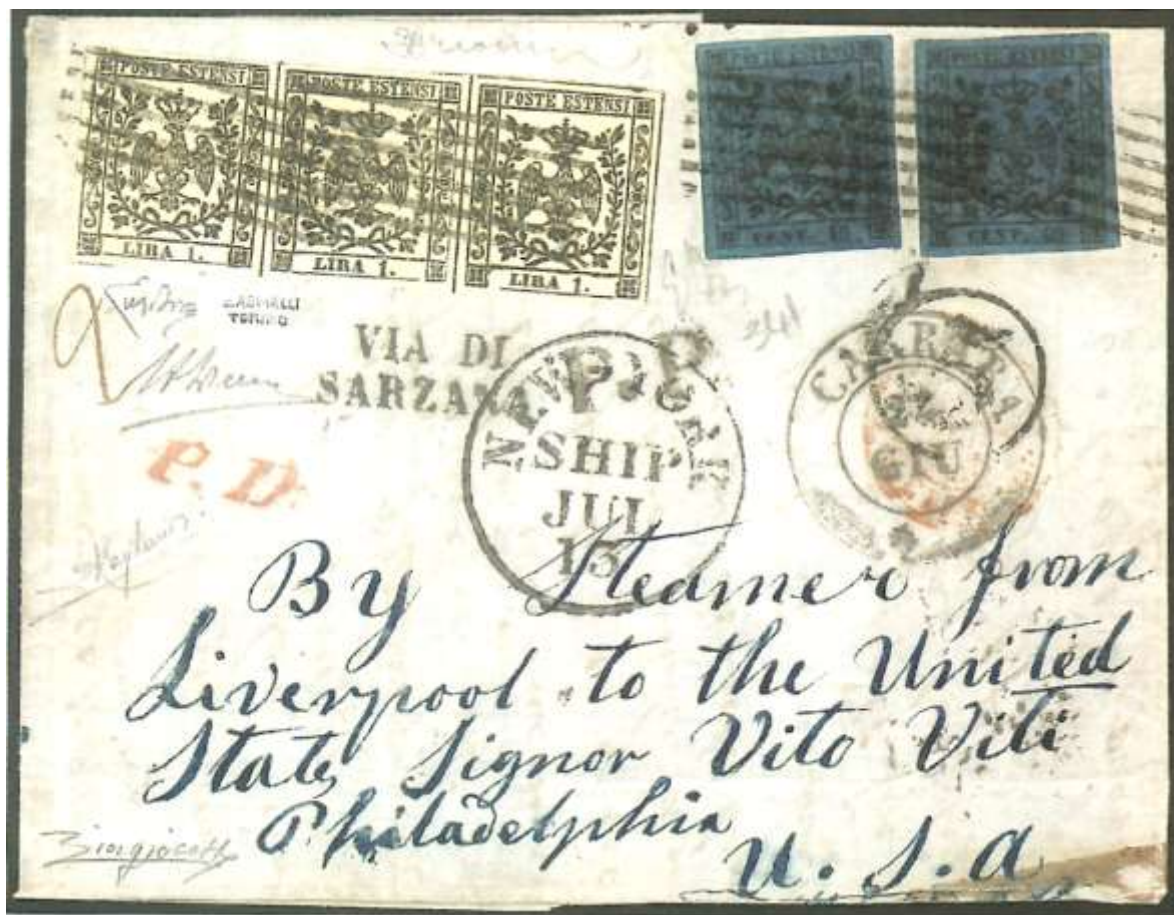 POSTE ESTENSI POSTE ESTENSI POSTE ESTENSI
LIRA 1. LIRA 1. LIRA 1.
CENT. CENT.
TORINO
VIA DI
SARZANA
P.P.
NEW YORK
SHIP
JUL
13
CARRARA
GIU
P.D.
By Steamer from
Liverpool to the United
State Signor Vito Viti
Philadelphia
U.S.A
2